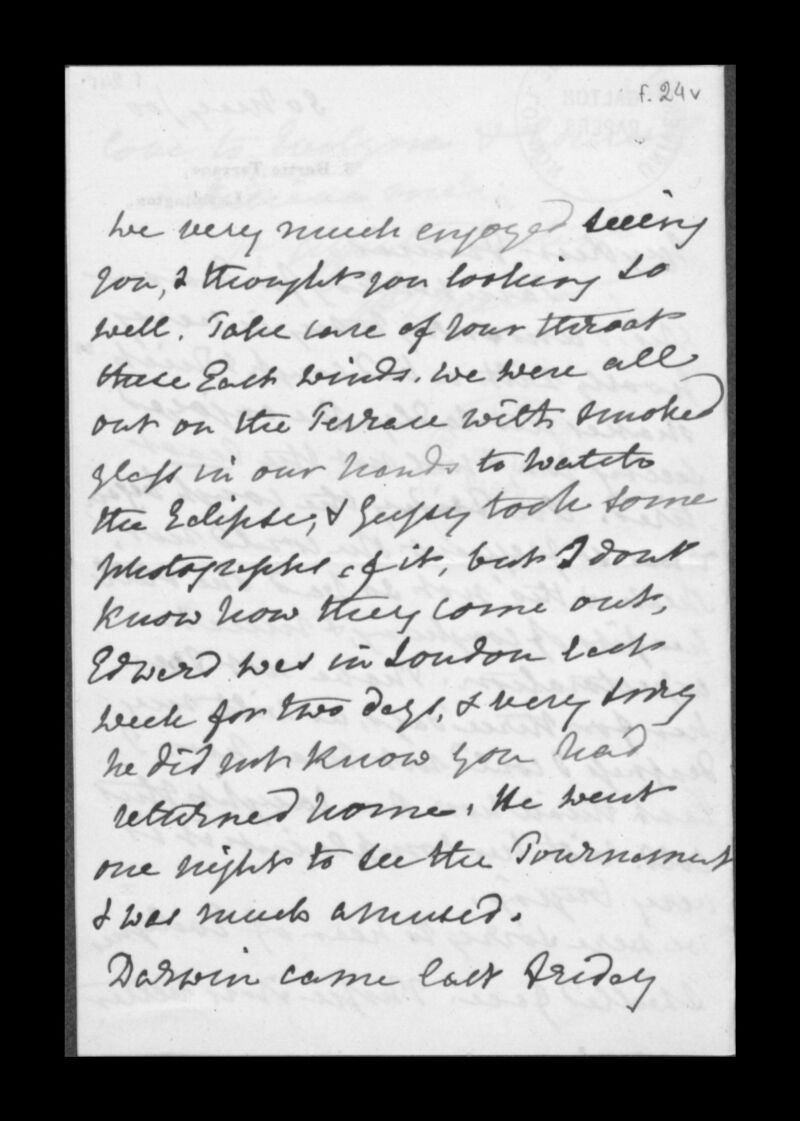 f. 24v
we very much enjoyed seeing
you, & thought you looking so
well. Take care of your throat
these East winds. we were all
out on the Terrace with smoked
glass in our hands to watch
the Eclipse, & Gussy took some
photographs of it, but I dont
know how they come out,
Edward was in London last
week for two days, & very sorry
he did not know you had
returned home. He went
one night to see the Tournament
& was much amused.
Darwin came last Friday